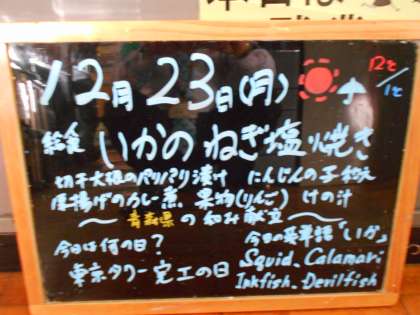 12月23日(月) 12℃/1℃
給食 いかのねぎ塩焼き
切干大根のパリパリ漬け にんじんの子和え
厚揚げのカレー煮 果物(りんご) けの汁
〜青森県の和み献立〜
今日は何の日? 今日の英単語「いか」
東京タワー完工の日 Squid、Calamari
Inkfish、Devilfish